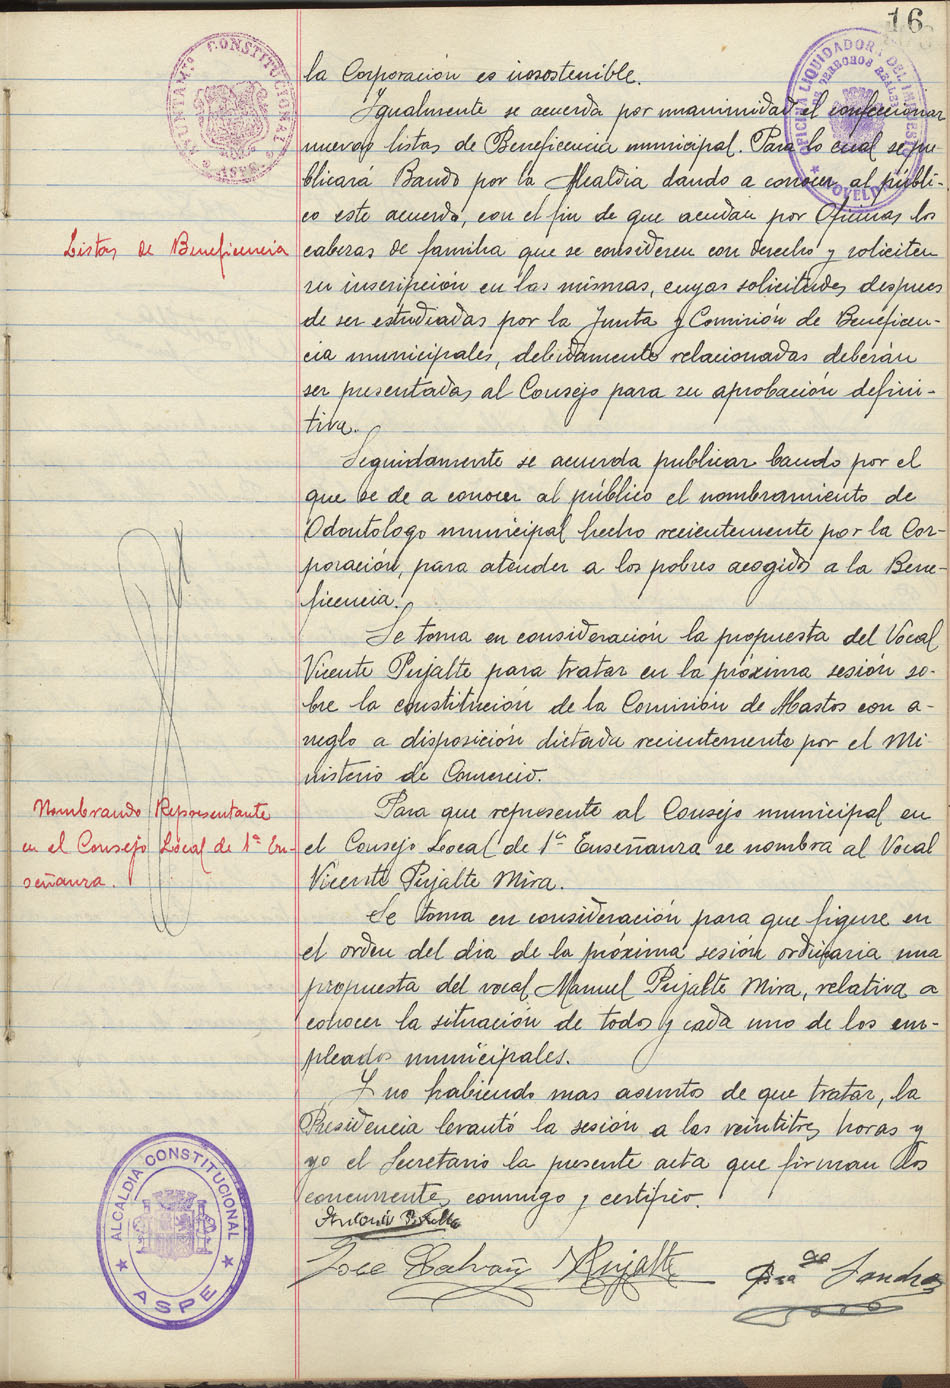 16
AYUNTAMTO CONSTITUCIONAL
ASPE
OFICINA LIQUIDADORA DEL IMPUESTO
DE DERECHOS REALES
NOVELDA
la Corporación es insostenible.
Igualmente se acuerda por unanimidad el confeccionar
nuevas listas de Beneficencia municipal. Para lo cual se pu-
blicará Bando por la Alcaldia dando a conocer al públi-
co este acuerdo, con el fin de que acudan por Oficinas los
Listas de Beneficencia
cabezas de familia que se consideren con derecho y soliciten
su inscripción en las mismas, cuyas solicitudes despues
de ser estudiadas por la Junta y Comisión de Beneficen-
cia municipales, debidamente relacionadas deberán
ser presentadas al Consejo para su aprobación defini-
tiva.
Seguidamente se acuerda publicar bando por el
que se de a conocer al público el nombramiento de
Odontologo municipal hecho recientemente por la Cor-
poración, para atender a los pobres acogidos a la Bene-
ficencia.
Se toma en consideración la propuesta del Vocal
Vicente Pujalte para tratar en la próxima sesión so-
bre la constitución de la Comisión de Abastos con a-
rreglo a disposición dictada recientemente por el Mi-
nisterio de Comercio.
Nombrando Representante
en el Consejo Local de 1ª En-
señanza.
Para que represente al Consejo municipal en
el Consejo Local de 1ª Enseñanza se nombra al Vocal
Vicente Pujalte Mira.
Se toma en consideración para que figure en
el orden del dia de la próxima sesión ordinaria una
propuesta del vocal Manuel Pujalte Mira, relativa a
conocer la situación de todos y cada uno de los em-
pleados municipales.
Y no habiendo mas asuntos de que tratar, la
Presidencia levantó la sesión a las veintitres horas y
yo el Secretario la presente acta que firman los
concurrentes conmigo y certifico.
Antonio
Jose Galvañ Pujalte
ALCALDIA CONSTITUCIONAL
ASPE